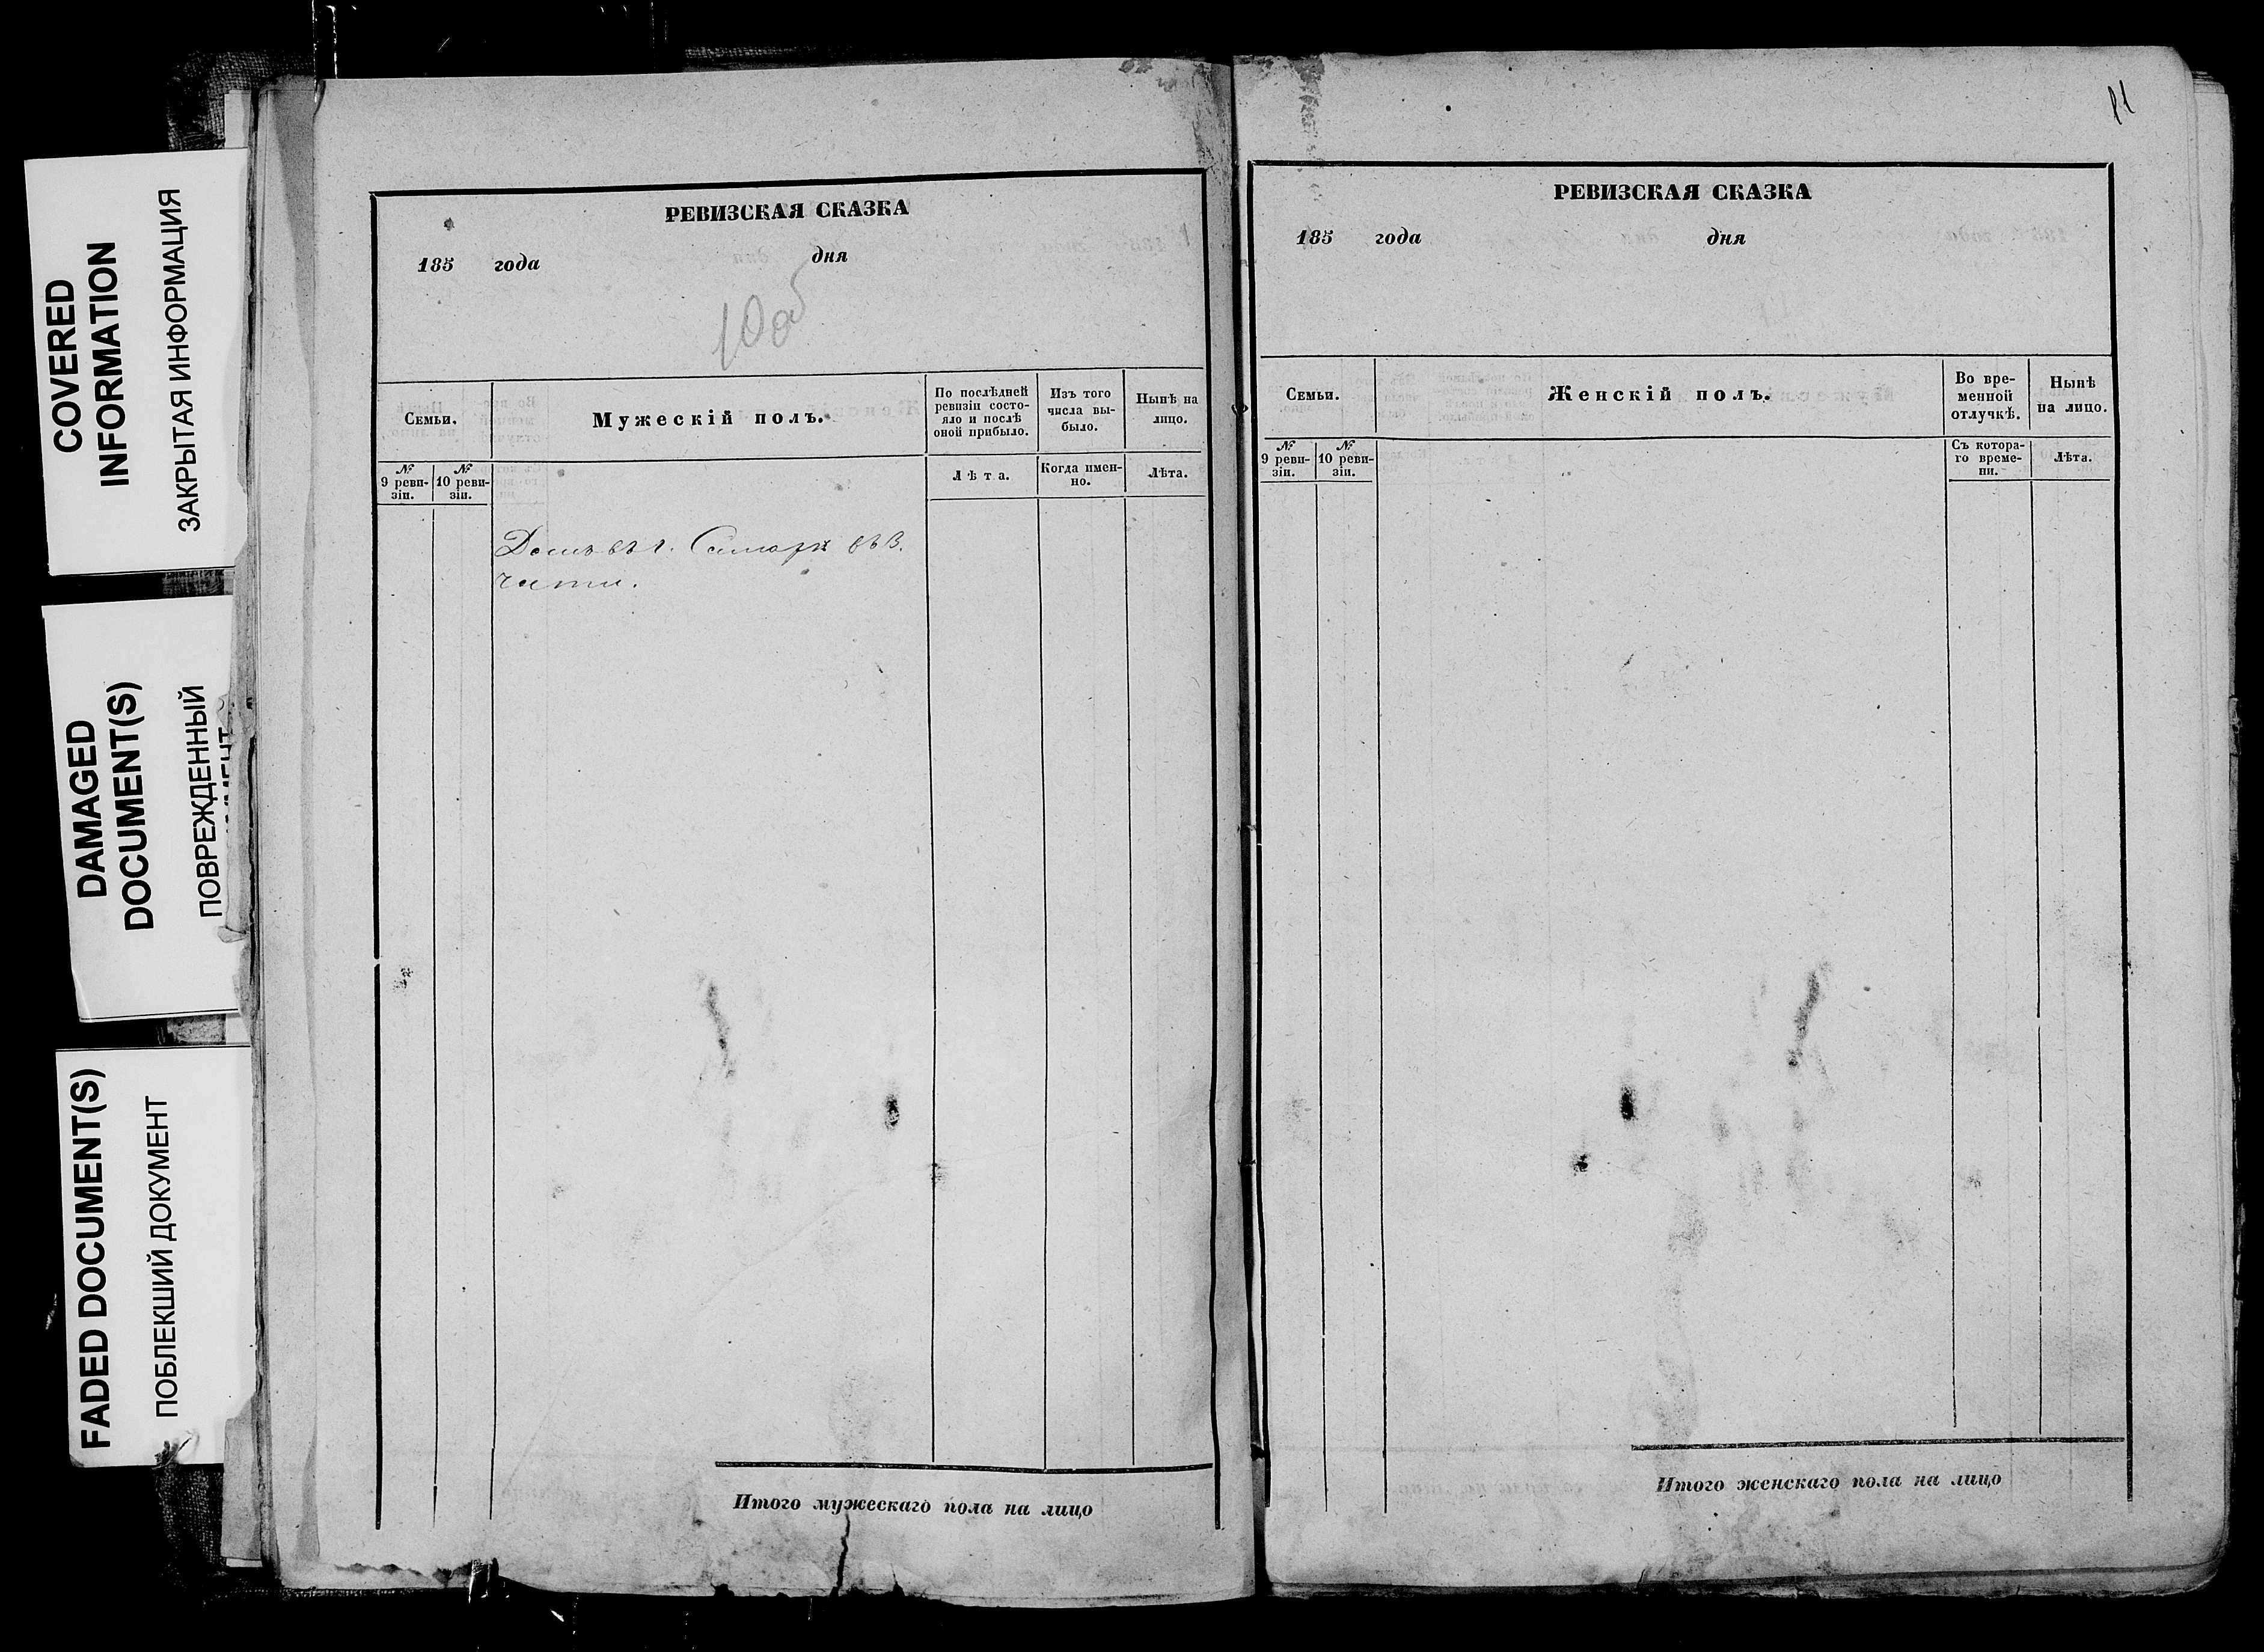 COVERED
INFORMATION
ЗАКРЫТАЯ ИНФОРМАЦИЯ
DAMAGED
DOCUMENT(S)
ПОВРЕЖДЕННЫЙ
FADED DOCUMENT(S)
ПОБЛЕКШИЙ ДОКУМЕНТ
РЕВИЗСКАЯ СКАЗКА
185 года дня
10об
Семьи.
Мужескій полъ.
По послѣдней
ревизіи состо-
яло и послѣ
оной прибыло.
Изъ того
числа вы-
было.
Нынѣ на
лицо.
№
9 реви-
зіи.
№
10 реви-
зіи.
Лѣта.
Когда имен-
но.
Лѣта.
Домъ въ г. Самарѣ въ 3.
части.
Итого мужескаго пола на лицо
11
РЕВИЗСКАЯ СКАЗКА
185 года дня
Семьи.
Женскій полъ.
Во вре-
менной
отлучкѣ.
Нынѣ
на лицо.
№
9 реви-
зіи.
№
10 реви-
зіи.
Съ котора-
го време-
ни.
Лѣта.
Итого женскаго пола на лицо